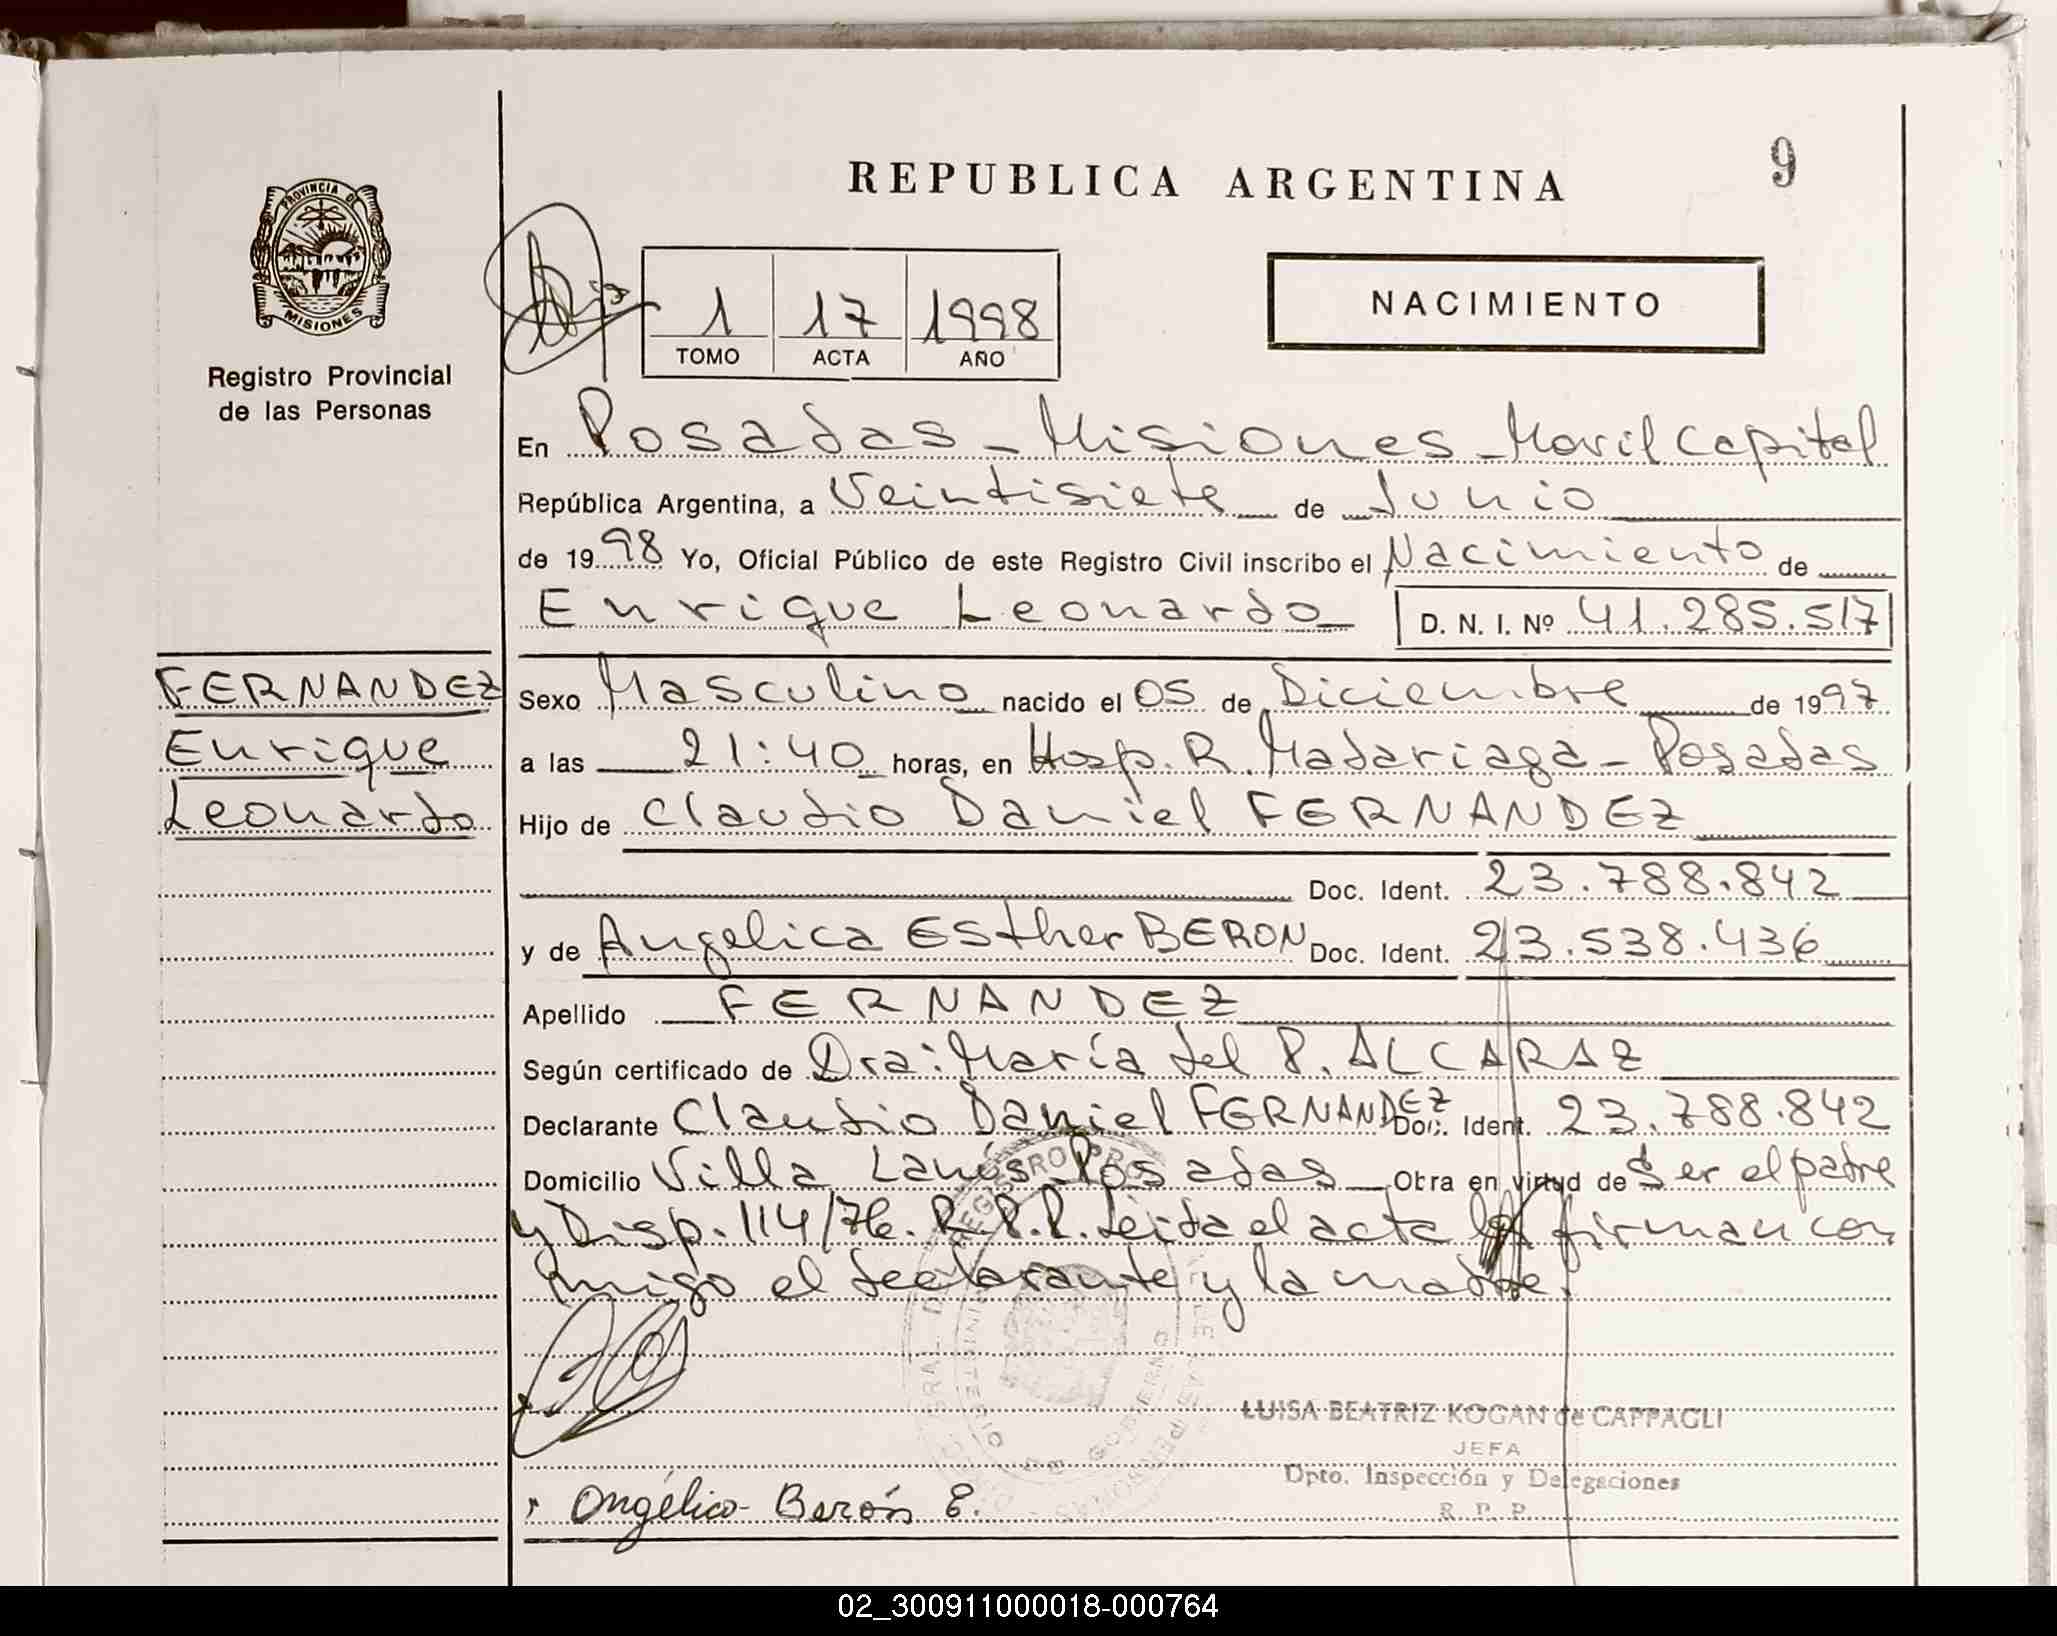 REPUBLICA ARGENTINA
9
PROVINCIA DE
MISIONES
Registro Provincial
de las Personas
1 17 1998
TOMO ACTA AÑO
NACIMIENTO
En Posadas - Misiones - Movil Capital
República Argentina, a Veintisiete de Junio
de 1998 Yo, Oficial Público de este Registro Civil inscribo el Nacimiento de
Enrique Leonardo D. N. I. Nº 41.285.517
FERNANDEZ
Enrique
Leonardo
Sexo Masculino nacido el 05 de Diciembre de 1997
a las 21:40 horas, en Hosp. R. Madariaga - Posadas
Hijo de Claudio Daniel FERNANDEZ
Doc. Ident. 23.788.842
y de Angelica Esther BERON Doc. Ident. 23.538.436
Apellido FERNANDEZ
Según certificado de Dra: María del P. ALCARAZ
Declarante Claudio Daniel FERNANDEZ Doc. Ident. 23.788.842
Domicilio Villa Lanús - Posadas Obra en virtud de Ser el padre
y Disp. 114/76. R.P.P. Leida el acta firman con
migo el declarante y la madre.
LUISA BEATRIZ KOGAN de CAPPAGLI
JEFA
Dpto. Inspección y Delegaciones
R. P. P.
Angélica Berón E.
02_300911000018-000764